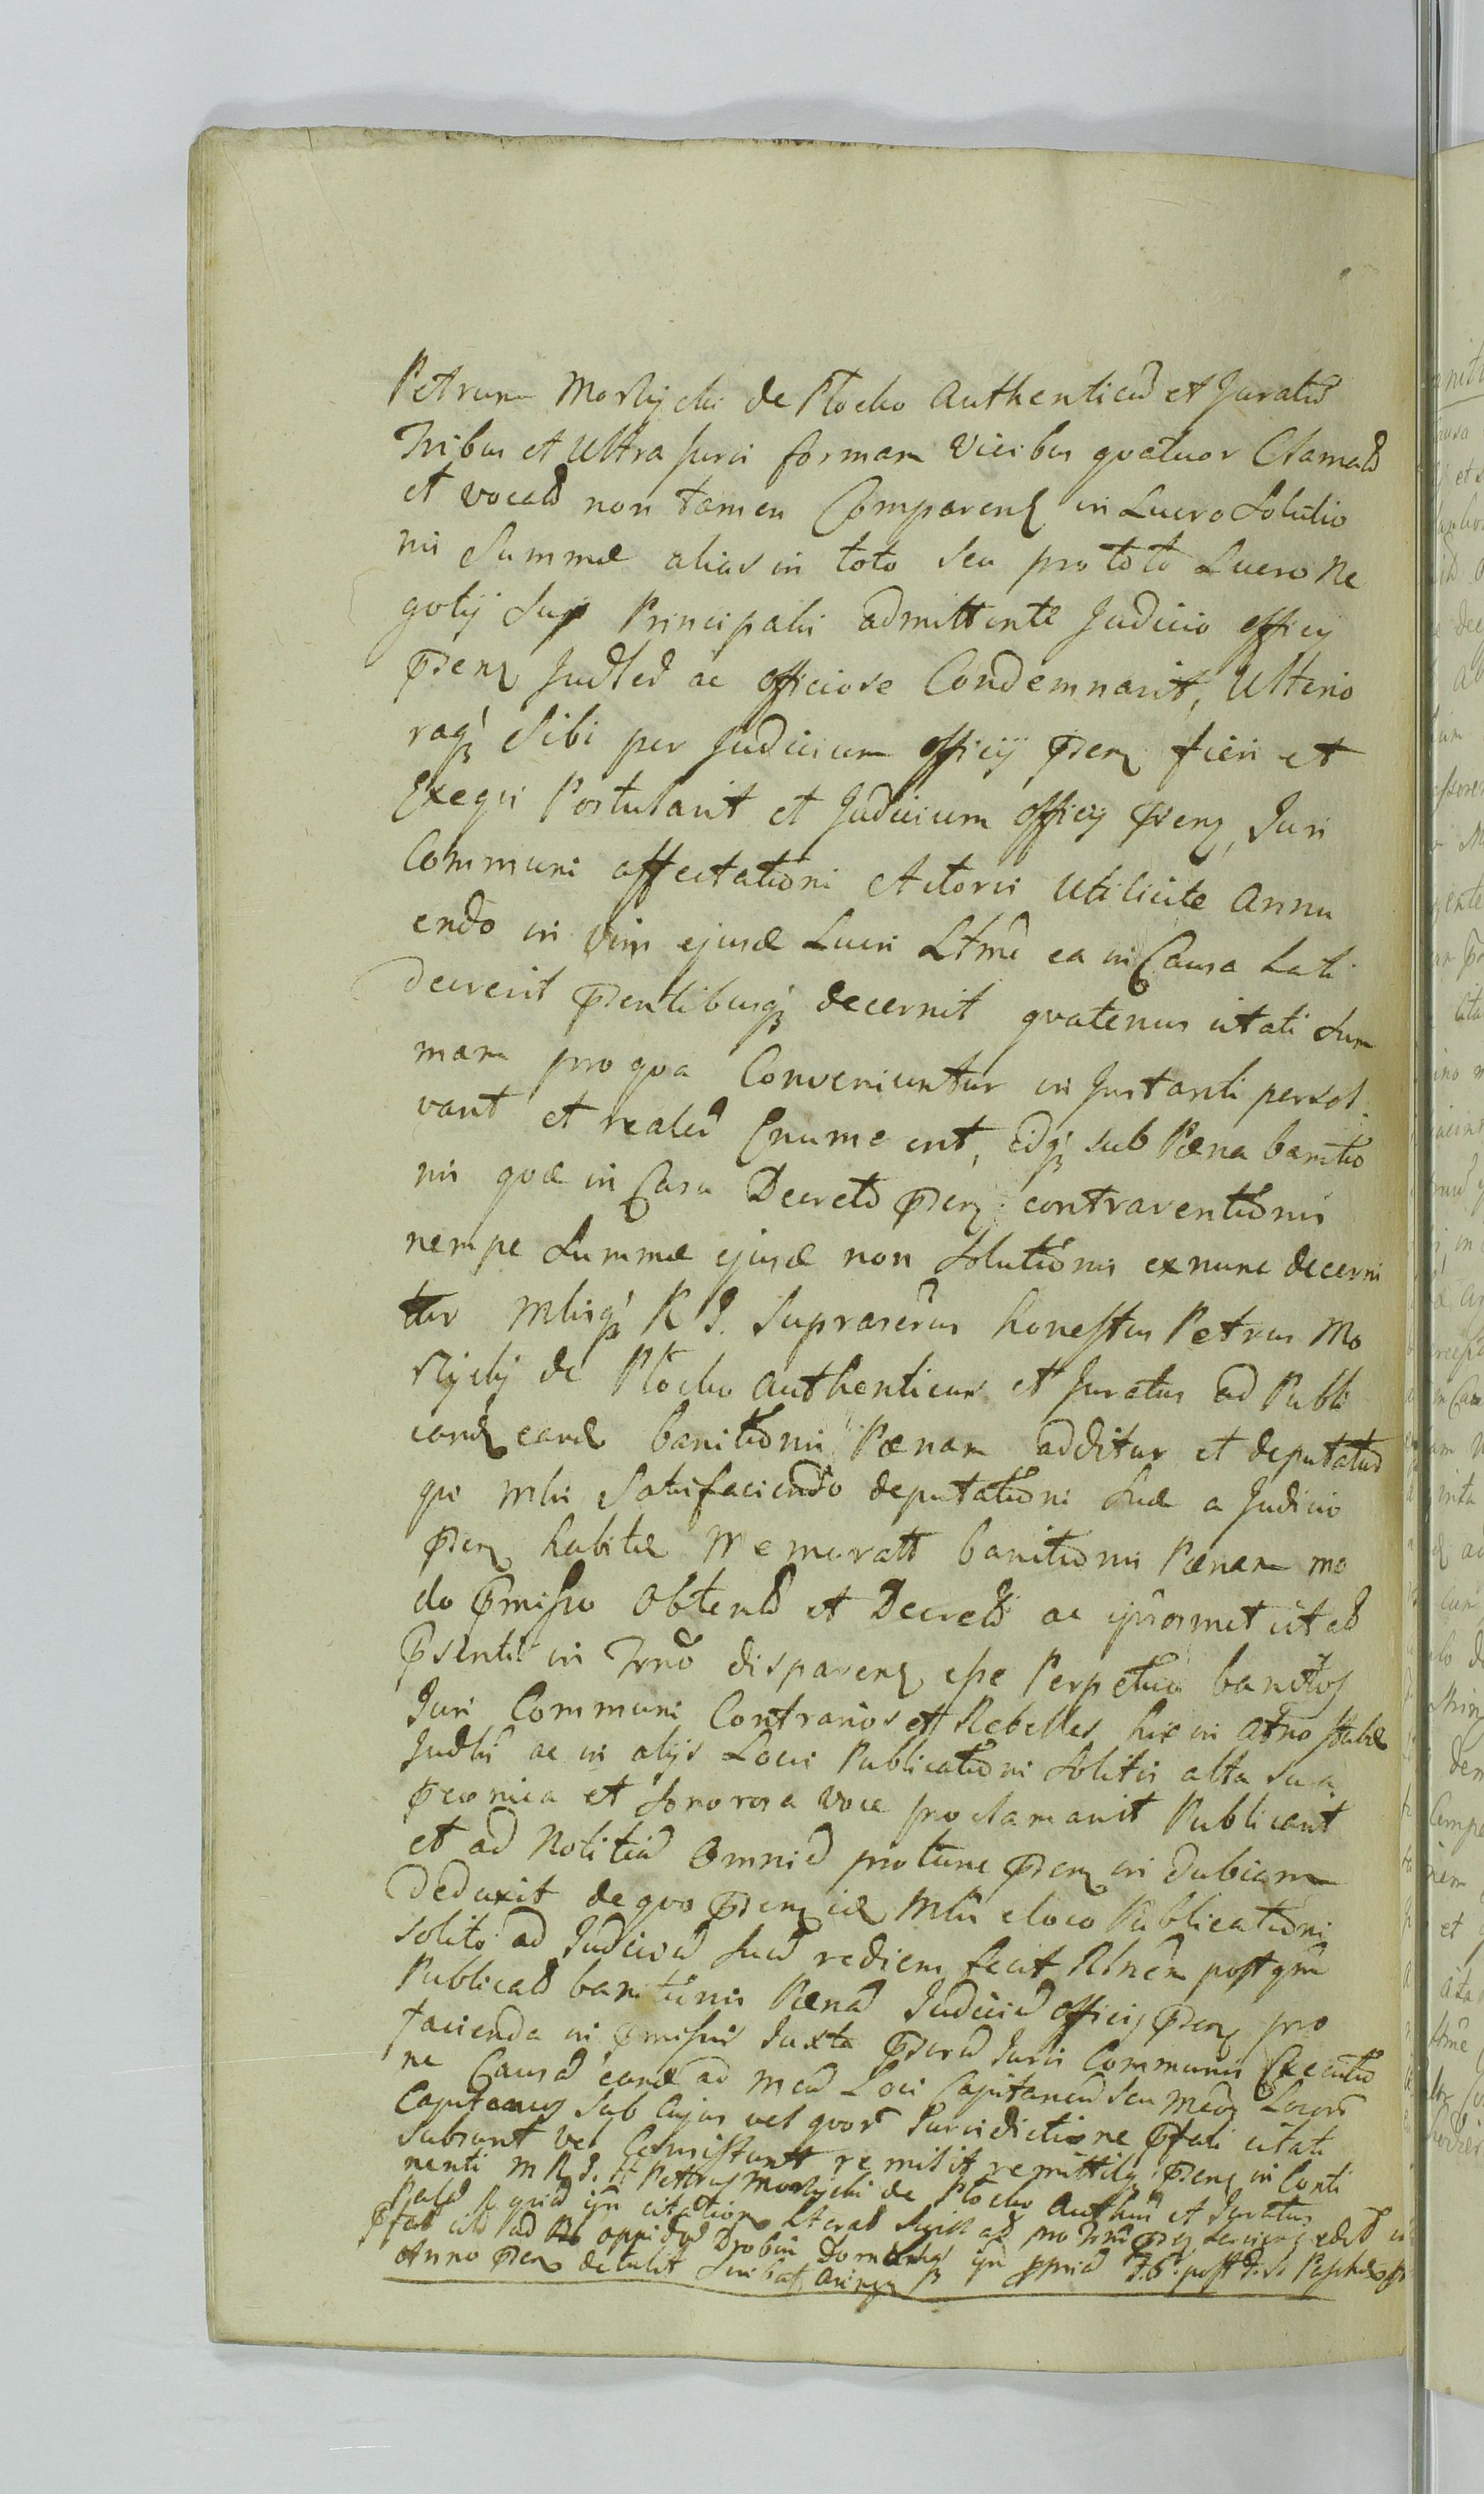 Petrum Mostychi de Plocko Authenticũ et Juratũ
Tribus et Ultra Juris formam vicibus quatuor Clamatũ
et vocatũ non tamen Comparenꝭ in Lucro Solutio
nis Summæ alias in toto seu pro toto Lucro Ne
gotij Sup Principalis admittente Judicio officij
Prenꝭ Judłr ac officiose Condemnavit, Ulterio
raq; Sibi per Judicium officij Pnꝭ fieri et
Exequi Postulavit et Judicium officij Pnꝭ, Juri
Communi affectationi Actoris Utilicite Annu
endo in vim ejusd Lucri in Causa lati
decrevit Pntibusq; decernit quatenus citati Sum
mam pro qua Conveniuntur in Instanti persol
vant et realr Enume ent, idq; sub Pæna banitio
nis quæ in Casu Decreto Pnꝭ contraventionis
nempe Summæ ejusd non Solutionis ex nunc decerni
tur Mlrisq; R J. Suprascrus honestus Petrus Mo
stychij de Plocko Authenticus et Juratus ad Publi
candꝭ eand banitionis Pænam additur et deputatur
qui Mlris Satisfaciendo deputationi Suæ a Judicio
Pnꝭ habitæ Memoratt banitionis Pænam mo
do Pmisso Obtent et Decret ac ipsosmet citat
Psentis in Trno disparenꝭ esse Perpetuos banitos
Juri Communi Contrarios et Rebelles hic in Atrio Stubæ
Judłis ac in alijs Locis Publicationi Solitis alta sua
Pconica et Sonorosa voce proclamavit Publicavit
et ad Notitiã Omniũ pro tunc Pnꝭ in dubiam
deduxit de quo Pnꝭ id Mlris e loco Publicationis
solito ad Judiciũ Suũ rediens fecit Rlnem post qm
Publicat banitionis Pænã Judiciũ officij Pnꝭ pro
facienda in Pmissis Juxta Juris Communis Executio
ne Causã eand ad Loci Capitaneũ seu Locorũ
Capitaneos sub Cujus vel quorũ Jurisdictione Pfati citati
Subsunt vel Consistunt remisit remittitq; Pnꝭ in Conti
nenti M R J. H Petrus Mostychi de Plocko Authus et Juratus
citation
oppidũ Drobin
Anno Pnꝭ detulit